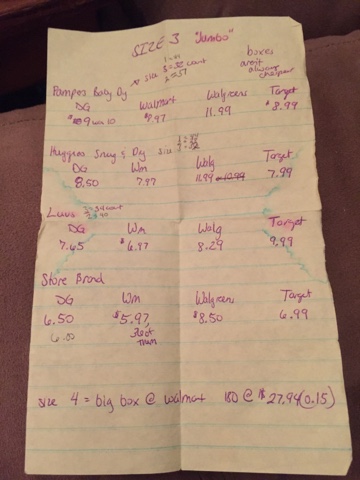 SIZE 3 "Jumbo"
boxes
aren't
always
cheaper
Pampers Baby Dry size 3=32 count
DG Walmart Walgreens Target
9 was 10 $7.97 11.99 $8.99
Huggies Snug & Dry size
DG WM Walg Target
8.50 7.97 11.99 10.99 7.99
Luvs 34 count
DG WM Walg Target
7.65 $6.97 8.29 9.99
Store Brand
DG WM Walgreens Target
6.50 $5.97, $8.50 6.99
6.00 36ct
size 4 = big box @ walmart 180 @ $27.94 (0.15)